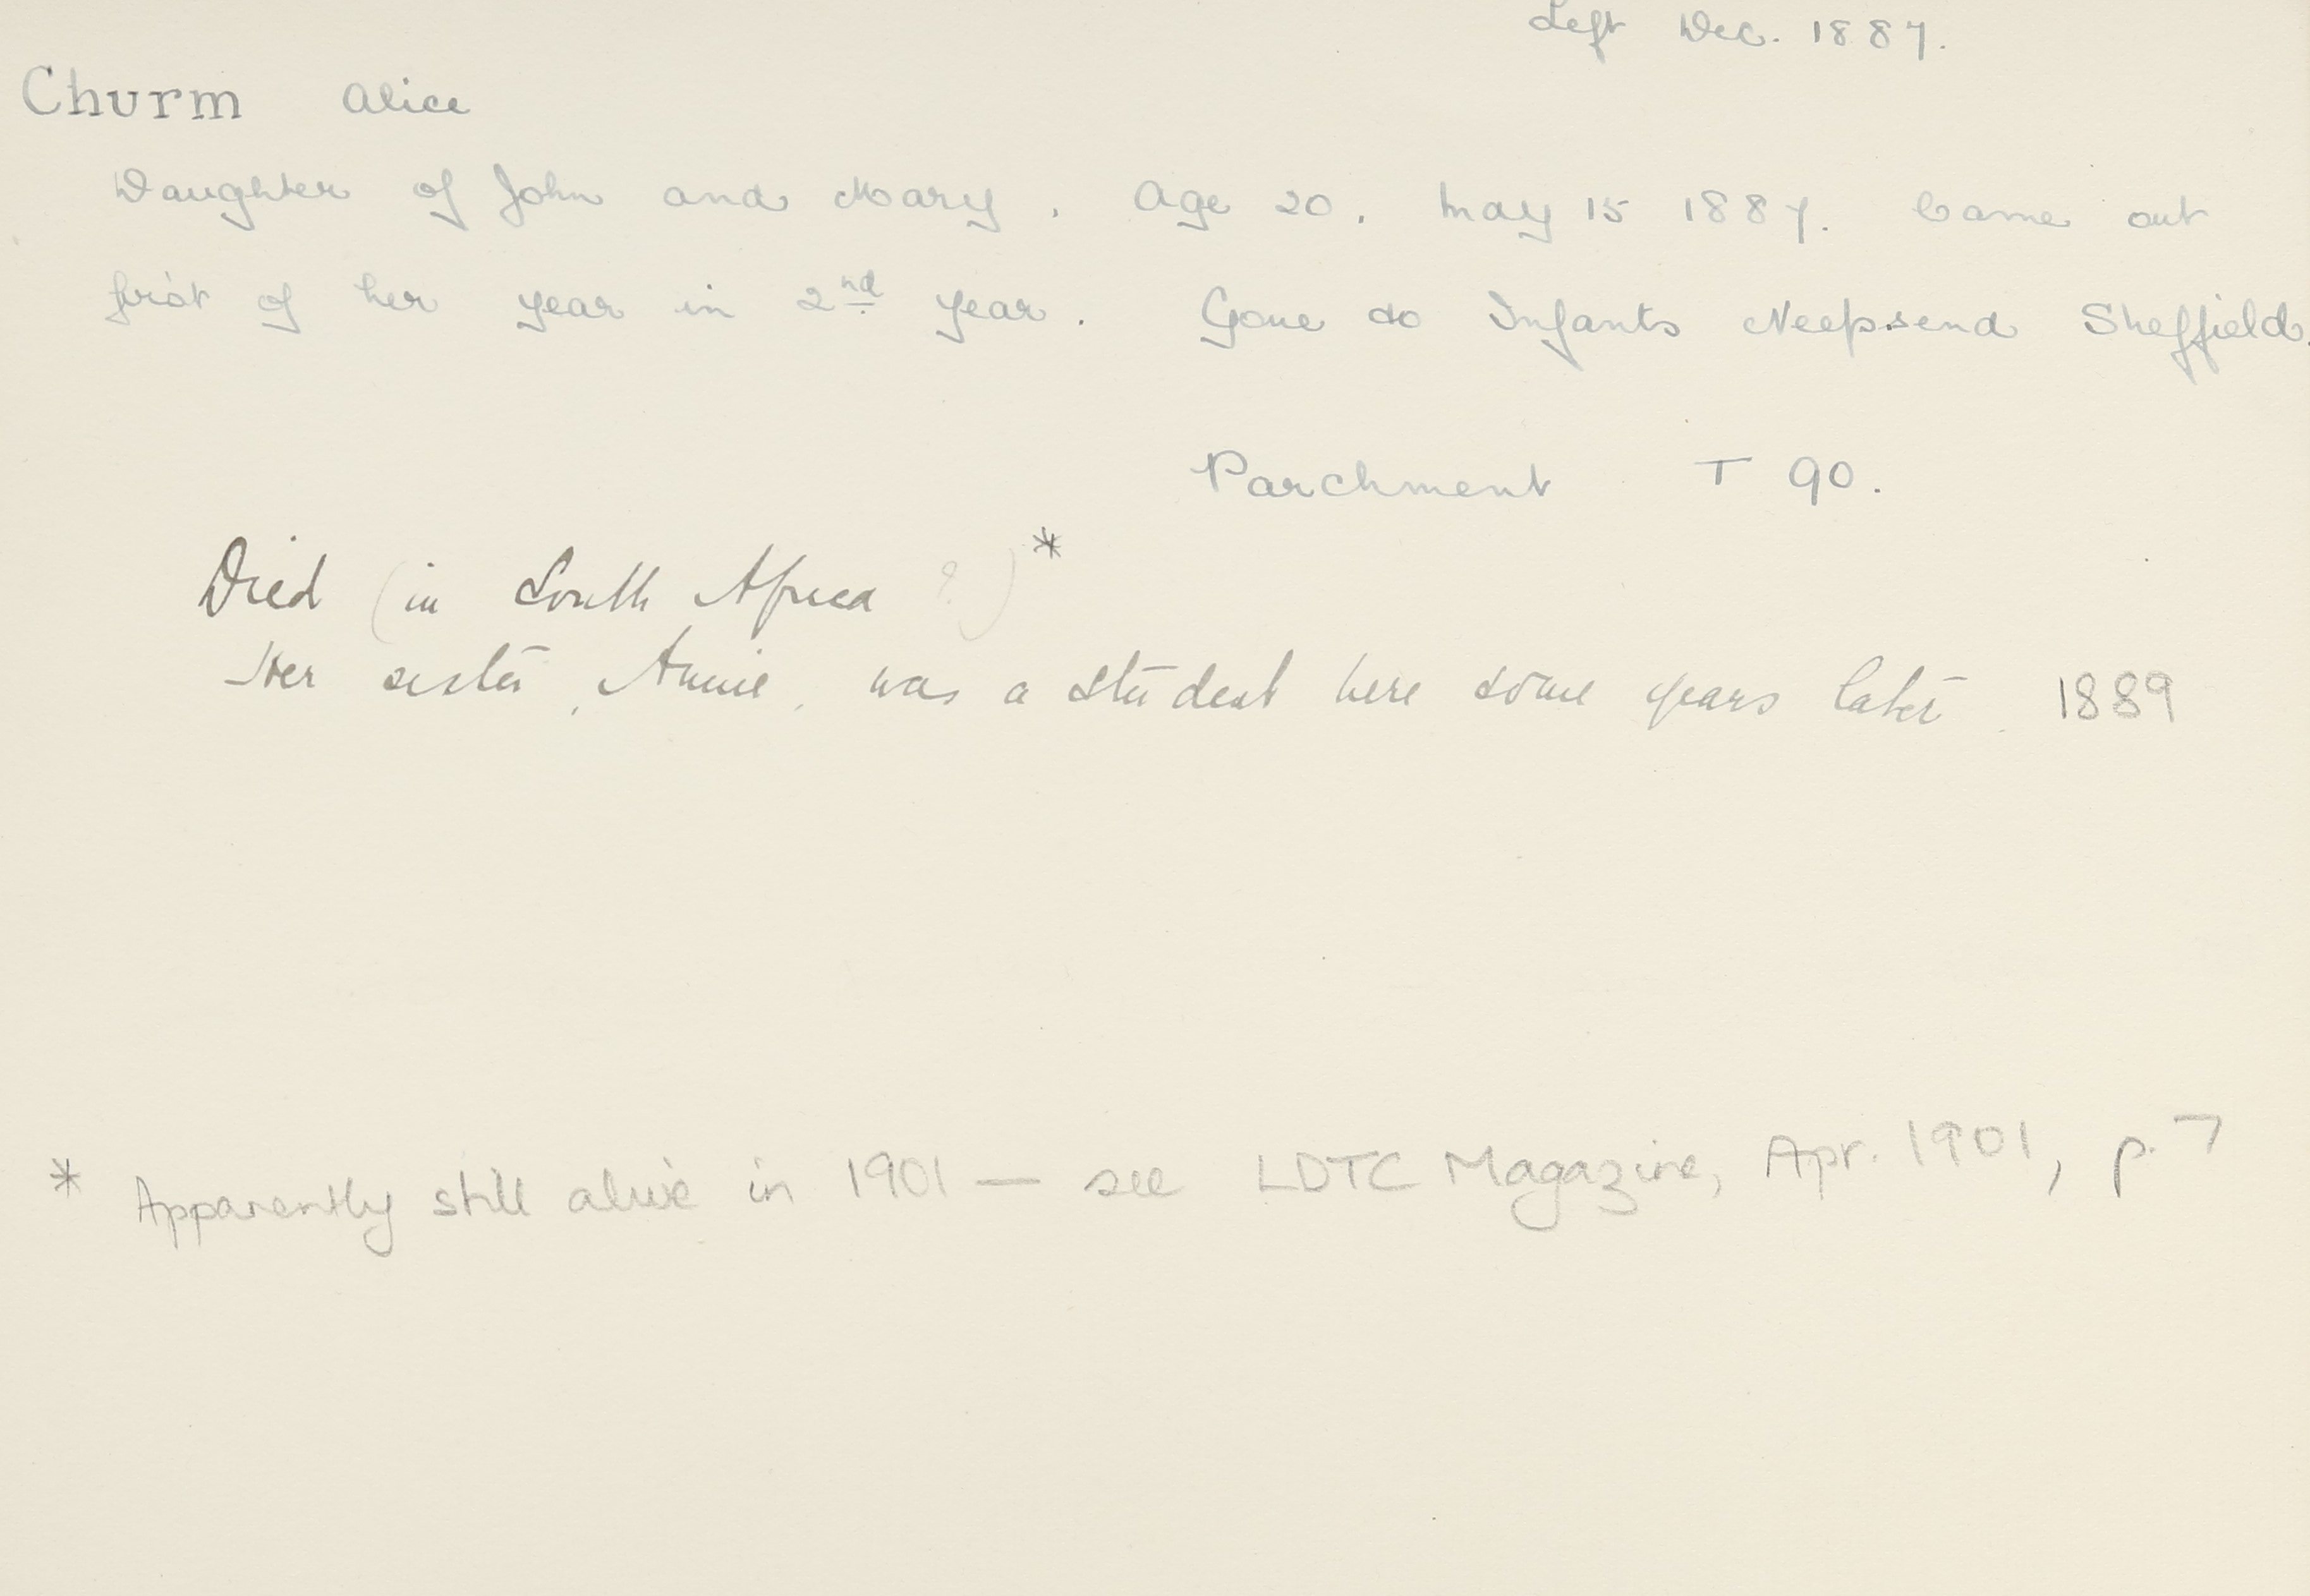 Left Dec. 1887.
Churm Alice
Daughter of John and Mary. Age 20. May 15 1887. Came out
first of her year in 2nd year. Gone to Infants Neepsend Sheffield.
Parchment T 90.
Died (in South Africa ?)*
Her sister, Annie, was a student here some years later. 1889
* Apparently still alive in 1901 — see LDTC Magazine, Apr. 1901, p. 7